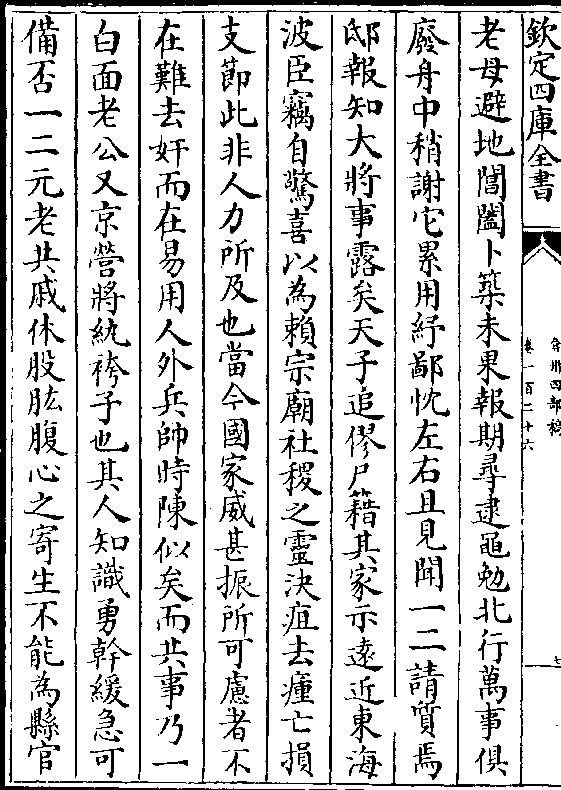 欽定四庫全書
弇州四部稿
卷一百二十六
七
老母避地閶闔卜築未果報期尋逮黽勉北行萬事俱
廢舟中稍謝它累用紓鄙忱左右且見聞一二請質焉
邸報知大將事露矣天子追僇尸籍其家示遠近東海
波臣竊自驚喜以為賴宗廟社稷之靈決疽去瘇亡損
支節此非人力所及也當今國家威甚振所可慮者不
在難去奸而在易用人外兵帥時陳似矣而共事乃一
白面老公又京營將紈袴子也其人知識勇幹緩急可
備否一二元老共戚休股肱腹心之寄生不能為縣官